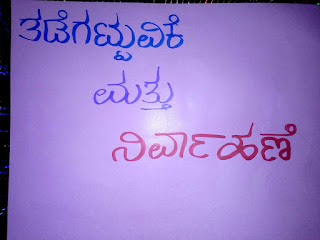 ತಡೆಗಟ್ಟುವಿಕೆ
ಮತ್ತು
ನಿರ್ವಾಹಣೆ